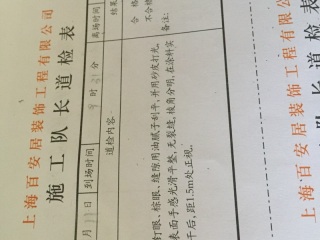 上海百安居装饰工程有限公司
施工队长道检表
月 日 到场时间 9 时 分 离场时间
道检内容 结果
合格
不合格
打眼、棕眼、缝隙用油腻子刮平，并用砂皮打光。 备注:
表面手感光滑平整，无裂缝，棱角分明，在涂料实
干后，距1.5m处正视。
上海百安居装饰工程有限公司